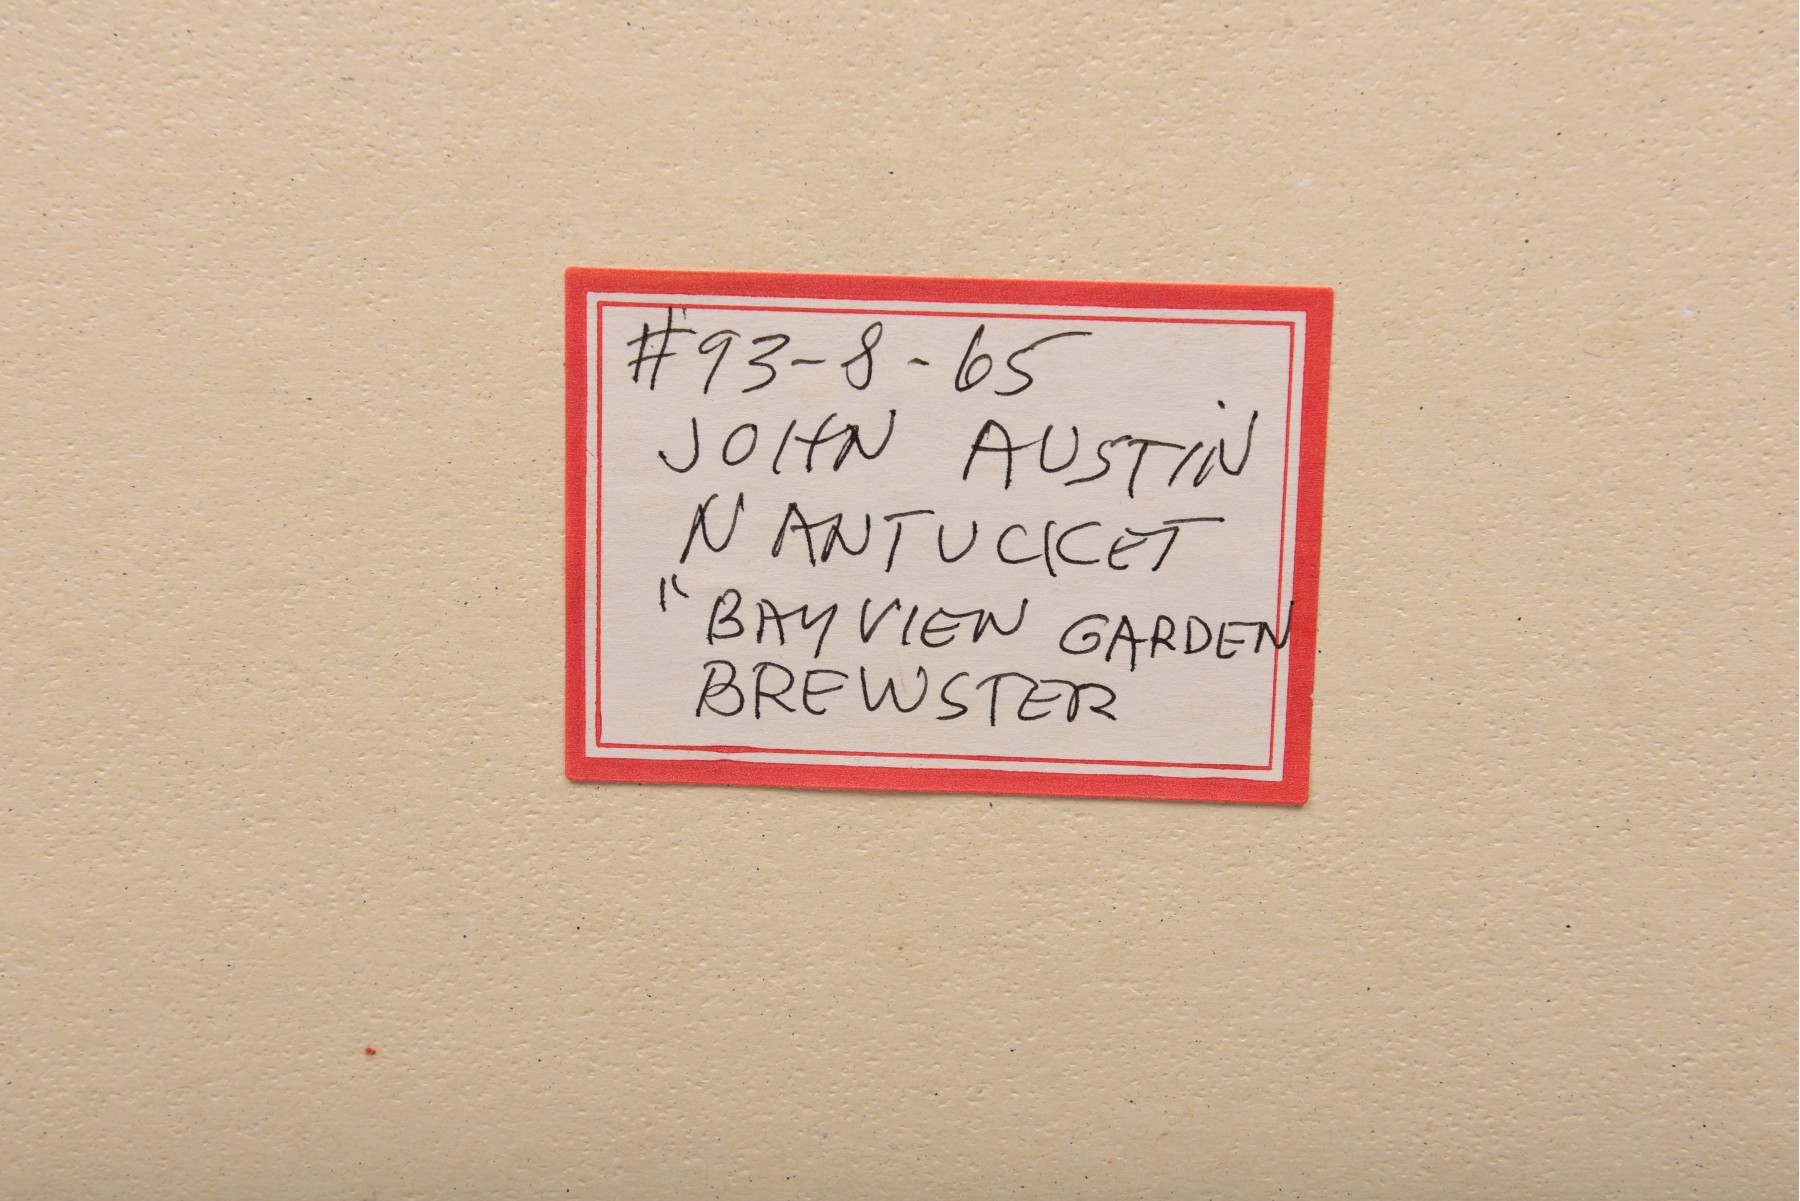 #93-8-65
JOHN AUSTIN
NANTUCKET
"BAYVIEW GARDEN
BREWSTER